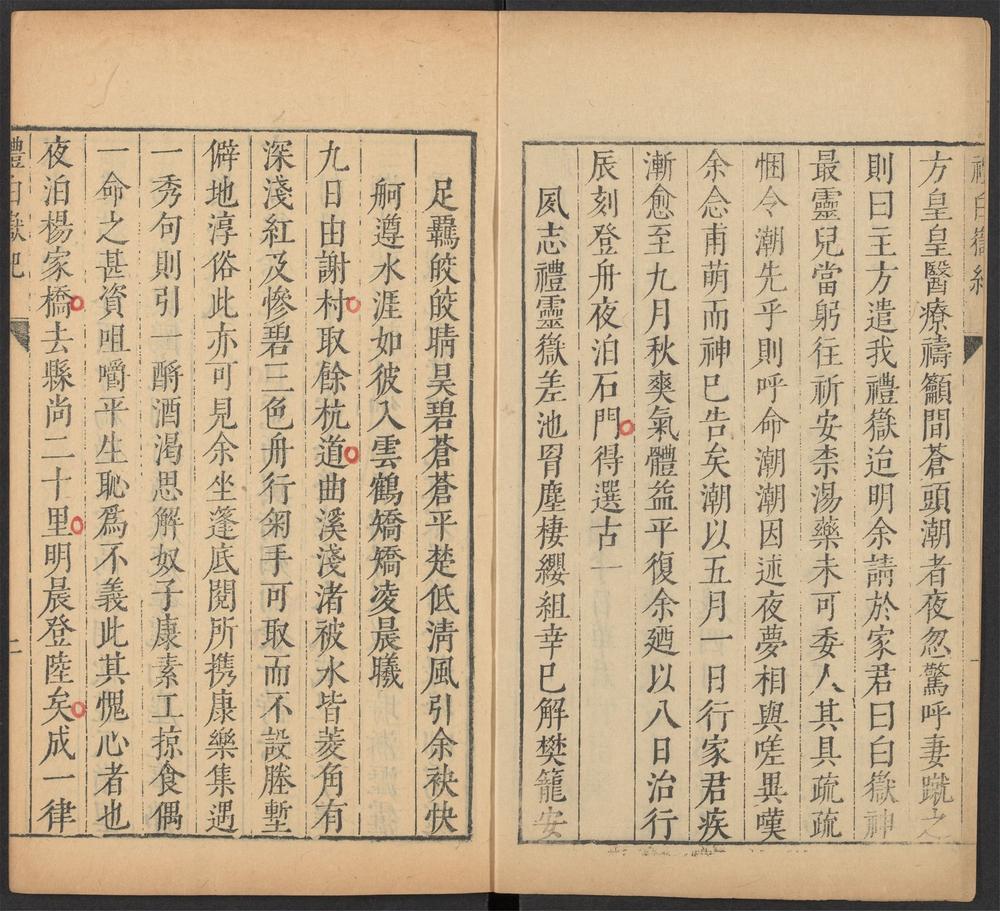 禮白嶽紀
方皇皇醫療禱籲間蒼頭潮者夜忽驚呼妻蹴之
則曰王方遣我禮嶽迨明余請於家君曰白嶽神
最靈兒當躬往祈安柰湯藥未可委人其具疏疏
悃令潮先乎則呼命潮潮因述夜夢相與嗟異嘆
余念甫萌而神已告矣潮以五月一日行家君疾
漸愈至九月秋爽氣體益平復余廼以八日治行
辰刻登舟夜泊石門得選古一
夙志禮靈嶽差池胥塵棲纓組幸已解樊籠安
足羈皎皎晴昊碧蒼蒼平楚低清風引余袂快
舸遵水涯如彼入雲鶴矯矯凌晨曦
九日由謝村取餘杭道曲溪淺渚被水皆菱角有
深淺紅及慘碧三色舟行匊手可取而不設塍塹
僻地淳俗此亦可見余坐蓬底閱所携康樂集遇
一秀句則引一酹酒渴思解奴子康素工掠食偶
一命之甚資咀嚼平生恥爲不義此其愧心者也
夜泊楊家橋去縣尚二十里明晨登陸矣成一律
禮白嶽紀
二